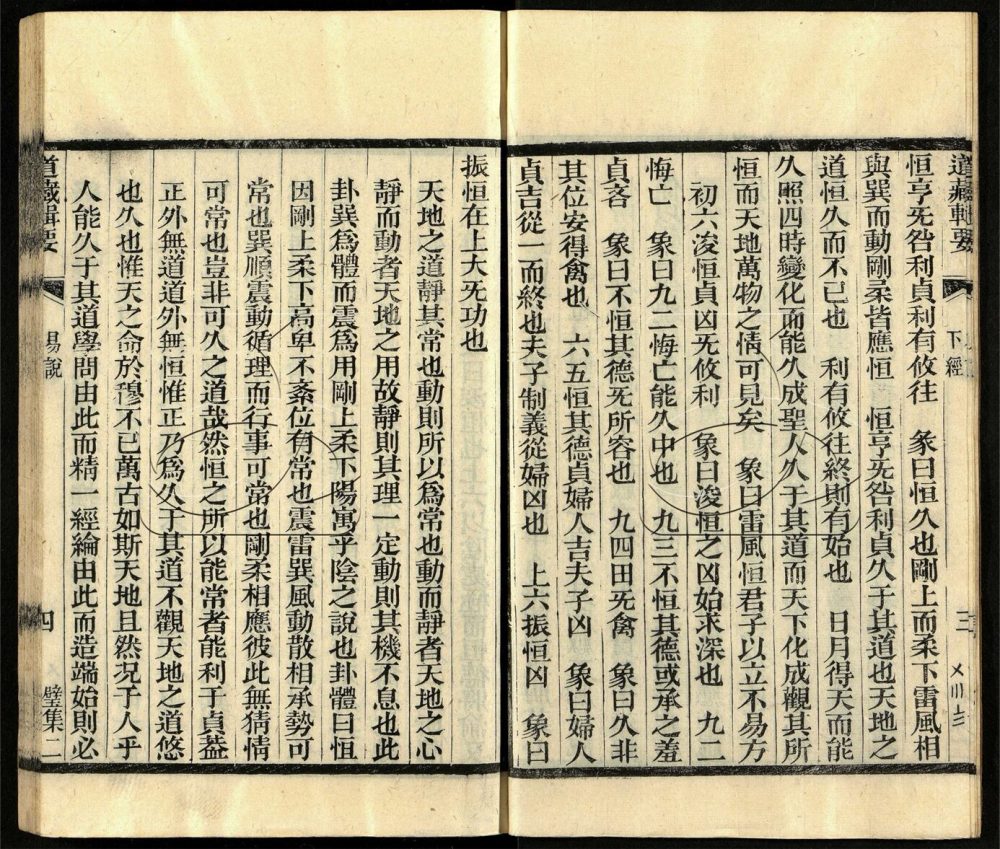 道藏輯要
下經
三
恒亨旡咎利貞利有攸往　彖曰恒久也剛上而柔下雷風相
與巽而動剛柔皆應恒　恒亨旡咎利貞久于其道也天地之
道恒久而不已也　利有攸往終則有始也　日月得天而能
久照四時變化而能久成聖人久于其道而天下化成觀其所
恒而天地萬物之情可見矣　象曰雷風恒君子以立不易方
初六浚恒貞凶旡攸利　象曰浚恒之凶始求深也　九二
悔亡　象曰九二悔亡能久中也　九三不恒其德或承之羞
貞吝　象曰不恒其德旡所容也　九四田旡禽　象曰久非
其位安得禽也　六五恒其德貞婦人吉夫子凶　象曰婦人
貞吉從一而終也夫子制義從婦凶也　上六振恒凶　象曰
振恒在上大旡功也
天地之道靜其常也動則所以爲常也動而靜者天地之心
靜而動者天地之用故靜則其理一定動則其機不息也此
卦巽爲體而震爲用剛上柔下陽寓乎陰之說也卦體曰恒
因剛上柔下高卑不紊位有常也震雷巽風動散相承勢可
常也巽順震動循理而行事可常也剛柔相應彼此無猜情
可常也豈非可久之道哉然恒之所以能常者能利于貞蓋
正外無道道外無恒惟正乃爲久于其道不觀天地之道悠
也久也惟天之命於穆不已萬古如斯天地且然况于人乎
人能久于其道學問由此而精一經綸由此而造端始則必
道藏輯要
易說
四
璧集二